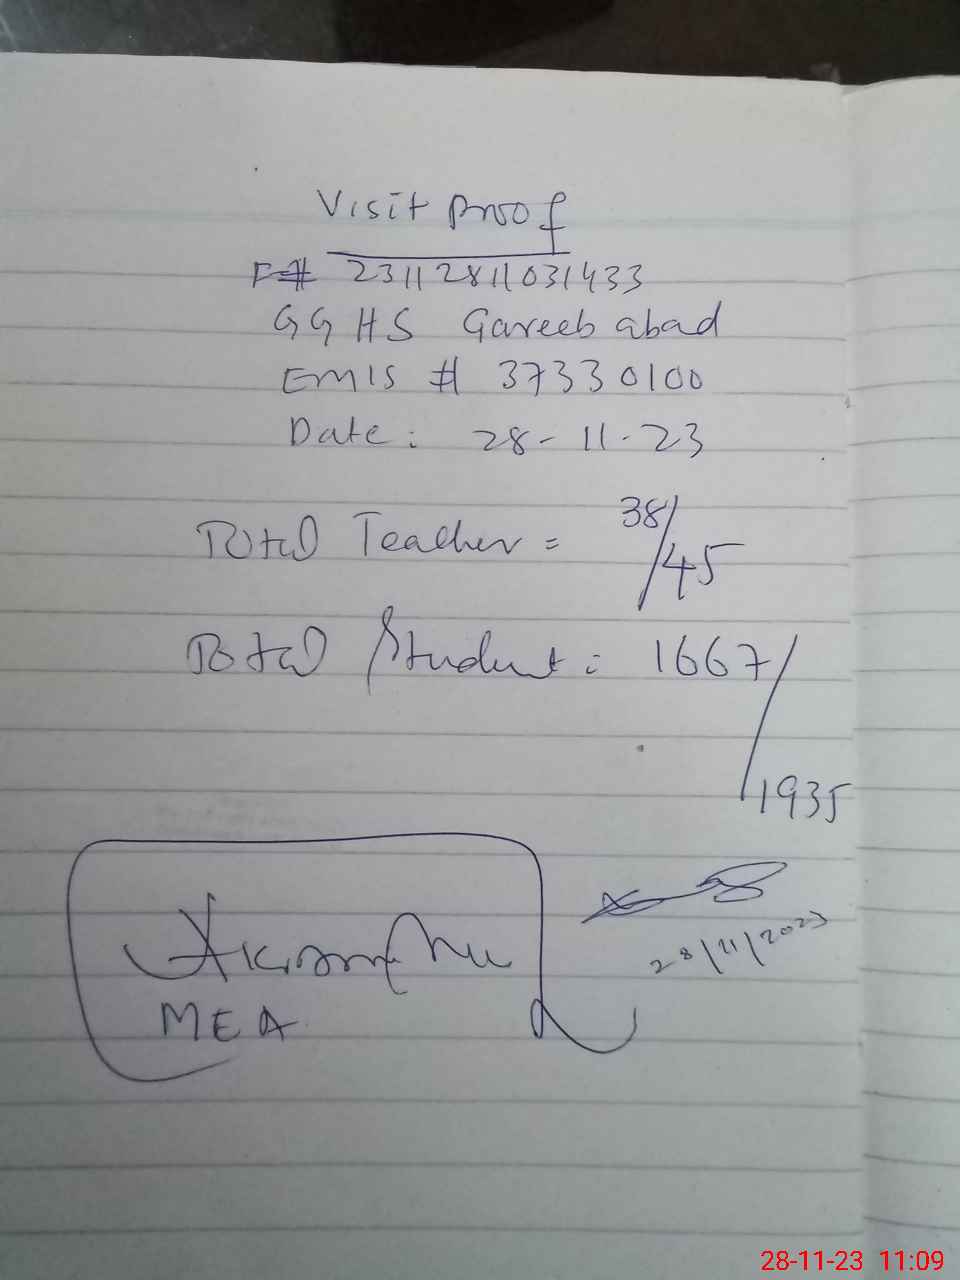 Visit Proof
F# 23112811031433
GGHS Gareeb abad
EMIS # 37330100
Date: 28-11-23
Total Teacher = 38/45
Total Student: 1667/1935
28/11/2023
MEA
28-11-23 11:09